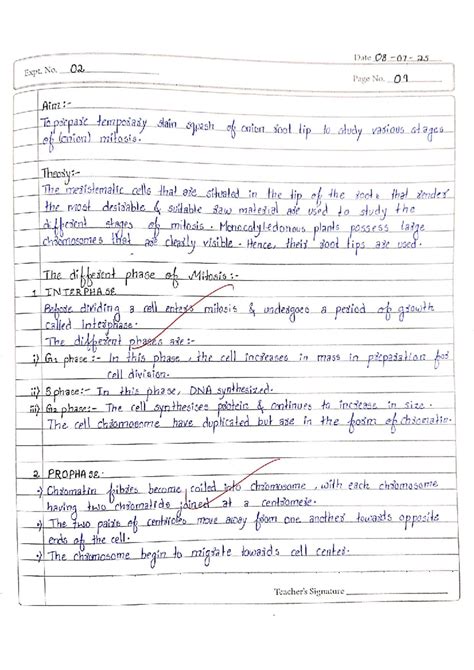 Date 08-07-25
Expt. No. 02
Page No. 01
Aim:-
To prepare temporary stain squash of onion root tip to study various stages
of (onion) mitosis.
Theory:-
The meristematic cells that are situated in the tip of the roots that render
the most desirable & suitable raw material are used to study the
different stages of mitosis. Monocotyledonous plants possess large
chromosomes that are clearly visible. Hence, their root tips are used.
The different phase of Mitosis:-
1. INTERPHASE
Before dividing a cell enters mitosis & undergoes a period of growth
called Interphase.
The different phases are:-
i) G1 phase:- In this phase, the cell increases in mass in preparation for
cell division.
ii) S phase:- In this phase, DNA synthesized.
iii) G2 phase:- The cell synthesises protein & continues to increase in size.
The cell chromosome have duplicated but are in the form of chromatin.
2. PROPHASE-
Chromatin fibres become coiled into chromosome, with each chromosome
having two chromatids joined at a centromere.
The two pairs of centrioles move away from one another towards opposite
ends of the cell.
The chromosome begin to migrate towards cell center.
Teacher's Signature